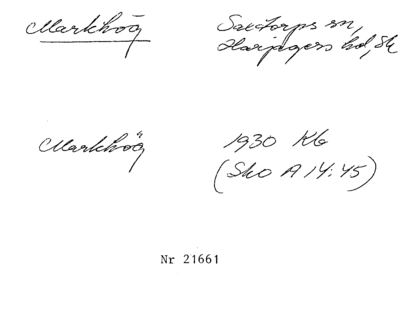 Markhög
Saxtorps sn,
Harjagers hd, Sk
Markhög
1930 Kb
(Sko A 14:45)
Nr 21661